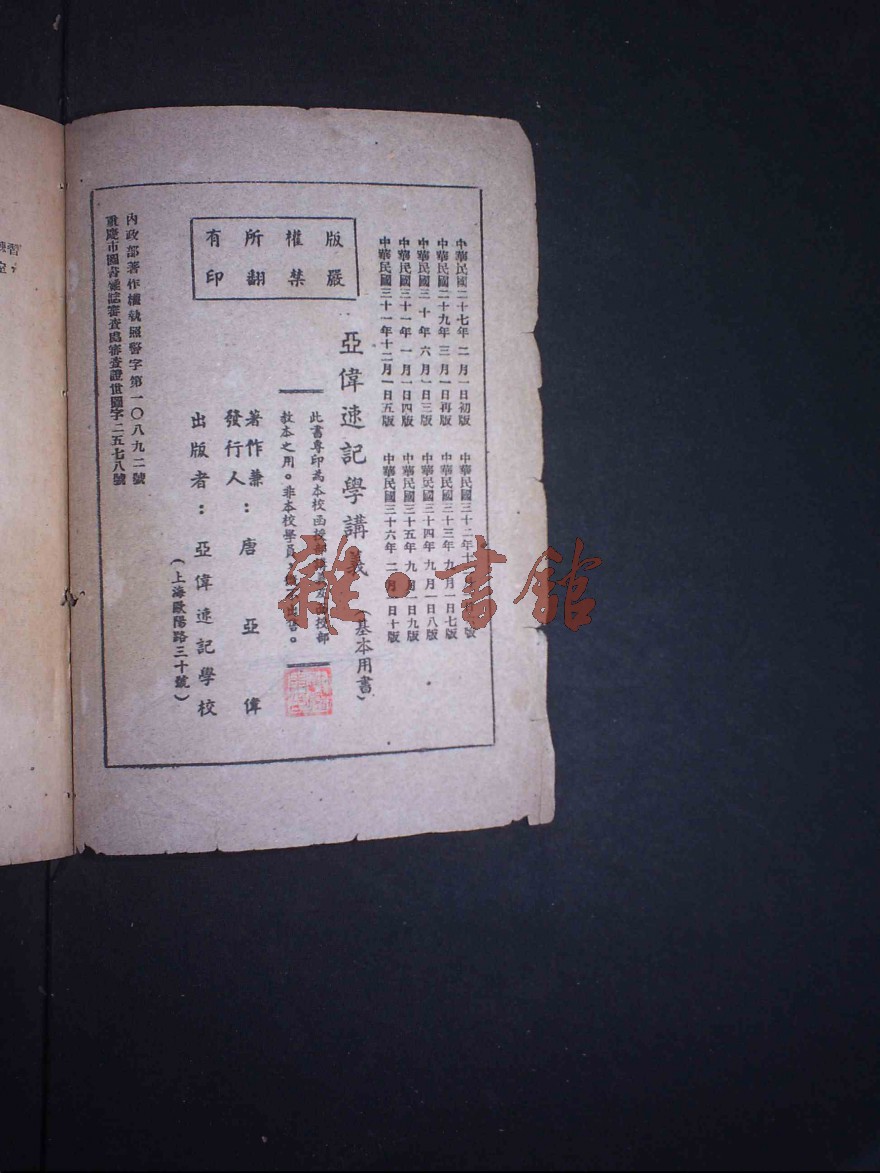 中華民國二十七年 二月一日初版
中華民國二十九年 三月一日再版
中華民國三十年 六月一日三版
中華民國三十一年 一月一日四版
中華民國三十一年十二月一日五版
中華民國三十二年十月一日六版
中華民國三十三年 九月一日七版
中華民國三十四年 九月一日八版
中華民國三十五年 九月一日九版
中華民國三十六年 二月一日十版
亞偉速記學講義(基本用書)
版權所有
嚴禁翻印
此書專印為本校函授部
教本之用。非本校學員
著作兼
發行人:唐亞偉
出版者:亞偉速記學校
(上海歐陽路三十號)
內政部著作權執照警字第一〇八九二號
重慶市圖書雜誌審查處審查證世圖字二五七八號
雜·書館
練習